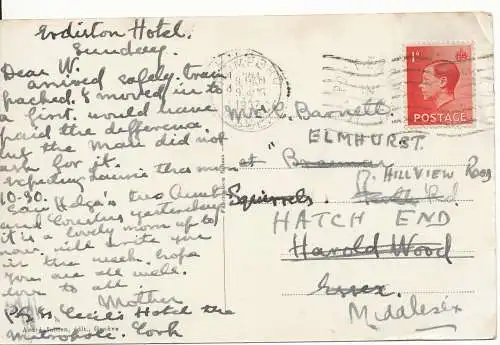 Erdiston Hotel.
Sunday.
Dear W.
arrived safely. train
packed. I moved in to
a first. would have
paid the difference.
but the man did not
ask for it.
Expecting Laurie this morn
10-30.
Saw Helga's two Aunts
and Cousins yesterday
it is a lovely morn up to
now. will write you
in the week. hope
you are all well.
love to all
Mother
P.S. Cecil's Hotel the
Metropole. Cork
André, édit., Genève
1D
POSTAGE
Mr C. Barnett.
ELMHURST.
at Braemar
HILLVIEW ROAD
Rd.
Squirrels.
HATCH END
Harold Wood
Essex
Middlesex